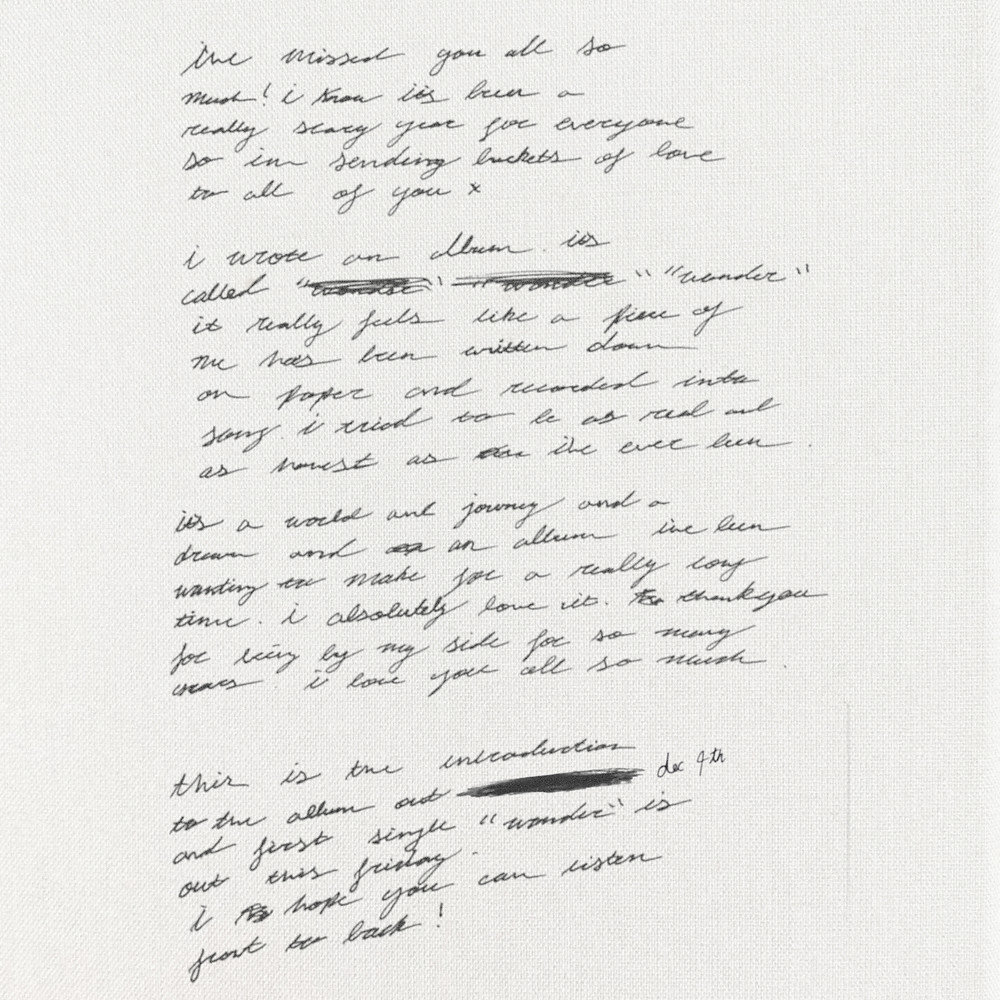 i've missed you all so
much! i know it's been a
really scary year for everyone
so im sending buckets of love
to all of you x
i wrote an album. its
called "wonder" "wonder" " "wonder"
it really feels like a piece of
me has been written down
on paper and recorded into
song. i tried to be as real and
as honest as i've ever been.
it's a world and journey and a
dream and an album i've been
wanting to make for a really long
time. i absolutely love it. thank you
for being by my side for so many
years. i love you all so much.
this is the introduction
to the album out dec 4th
and first single "wonder" is
out this friday.
i hope you can listen
front to back!